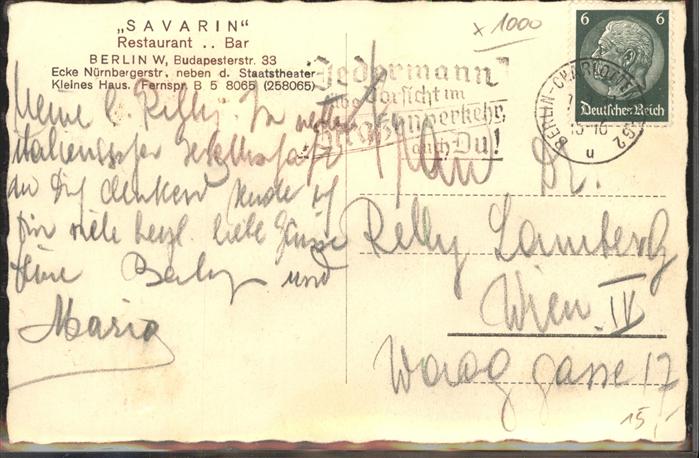 „SAVARIN"
Restaurant .. Bar
BERLIN W, Budapesterstr. 33
Ecke Nürnbergerstr. neben d. Staatstheater
Kleines Haus. Fernspr. B 5 8065 (258065)
x 1000
6 6
Deutsches Reich
BERLIN-CHARLOTTENBURG 2
u
„Jedermann
übe Vorsicht im
Straßenverkehr,
auch Du!
Meine l. Relly! In netter
italienischer Gesellschaft
an Dich denkend sende ich
für viele herzl. liebe Grüsse
Deine Baby und
Mario
Frau Dr.
Relly Lamberg
Wien IV
Waaggasse 17
15,-